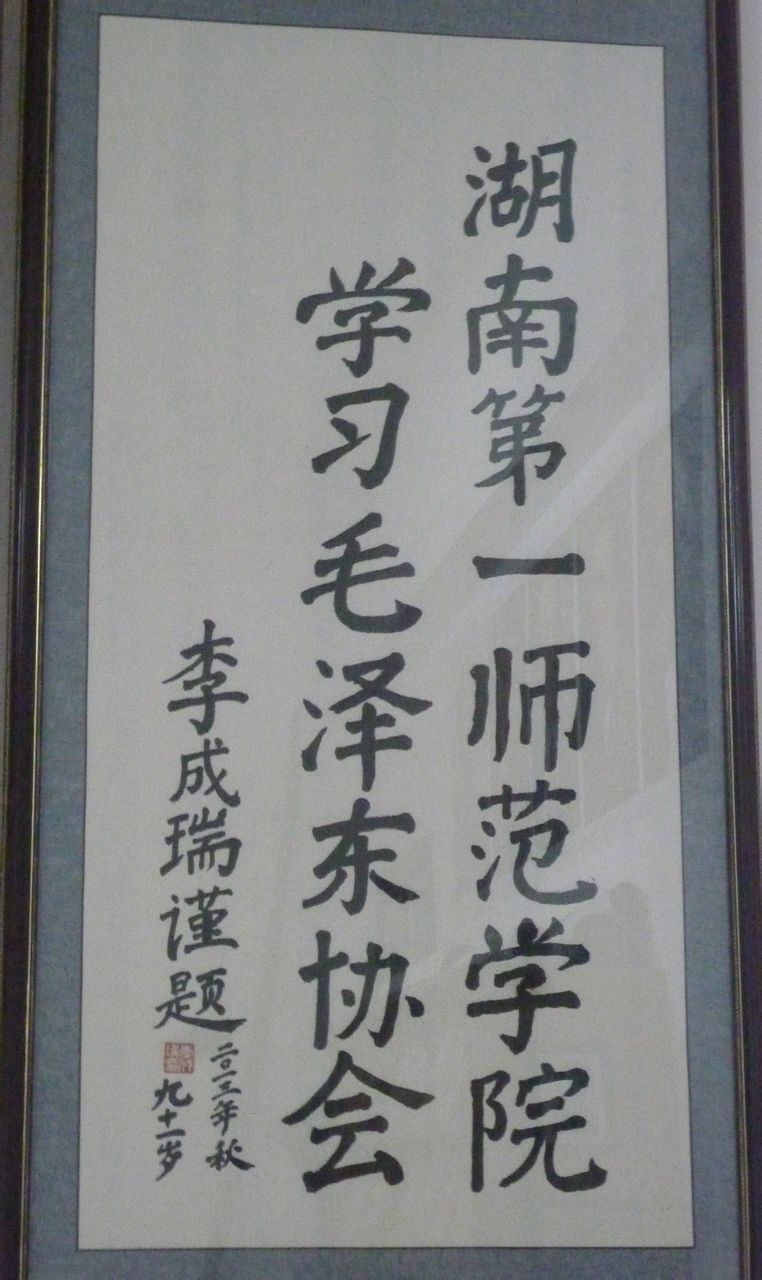 湖南第一师范学院
学习毛泽东协会
李成瑞谨题
二〇一三年秋
九十一岁